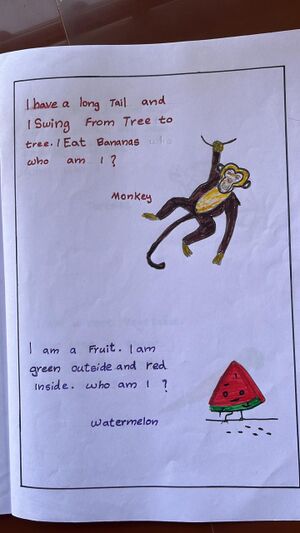 I have a long Tail and
I Swing From Tree to
tree. I Eat Bananas who
who am I ?
Monkey
I am a Fruit. I am
green outside and red
Inside. who am I ?
watermelon